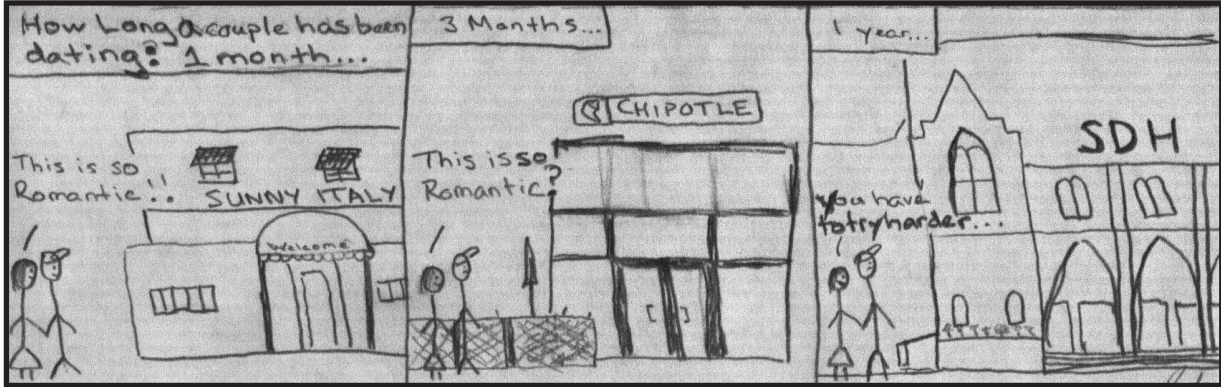 How Long a couple has been
dating: 1 month...
This is so
Romantic!!
SUNNY ITALY
Welcome
3 Months...
CHIPOTLE
This is so
Romantic?
1 year...
SDH
you have
to try harder...